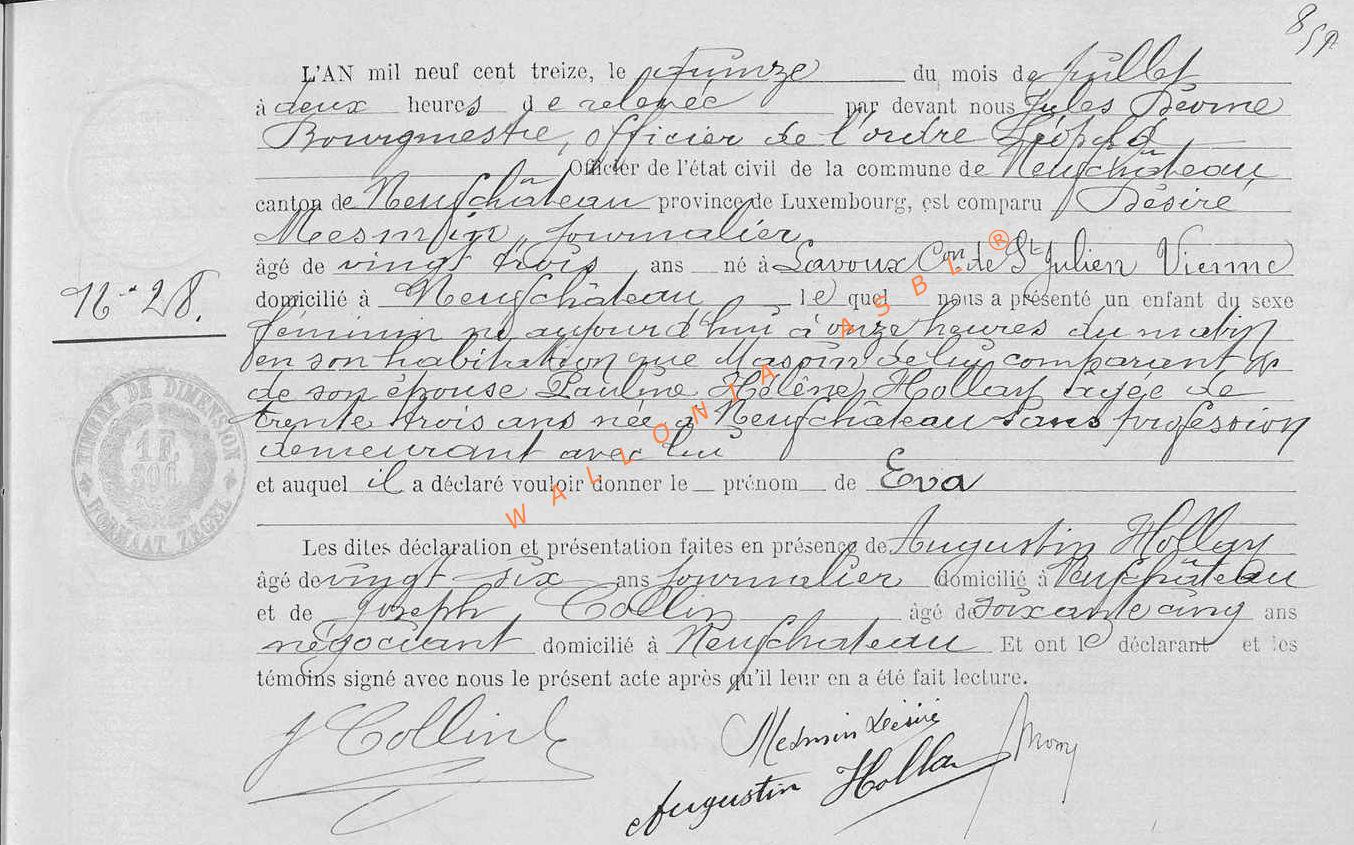 L'AN mil neuf cent treize, le quinze du mois de juillet
à deux heures de relevée par devant nous Jules
Bourgmestre, officier de l'ordre Léopold
Officier de l'état civil de la commune de Neufchâteau
canton de Neufchâteau province de Luxembourg, est comparu Désiré
Mesmin, journalier
âgé de vingt trois ans né à Lavoux Con de St Julien Vienne
N° 28.
domicilié à Neufchâteau lequel nous a présenté un enfant du sexe
féminin né aujourd'hui à onze heures du matin
en son habitation que de lui comparant &
de son épouse Pauline Hélène Hollay agée de
trente trois ans née à Neufchâteau sans profession
demeurant avec lui
et auquel il a déclaré vouloir donner le prénom de Eva
Les dites déclaration et présentation faites en présence de Augustin Hollay
âgé de vingt six ans journalier domicilié à Neufchâteau
et de Joseph Collin âgé de soixante cinq ans
négociant domicilié à Neufchateau Et ont le déclarant et les
témoins signé avec nous le présent acte après qu'il leur en a été fait lecture.
J Collin
Mesmin Désiré
Augustin Hollay
TIMBRE DE DIMENSION
1F.
50C.
FORMAAT ZEGEL
WALLONIA ASBL ®